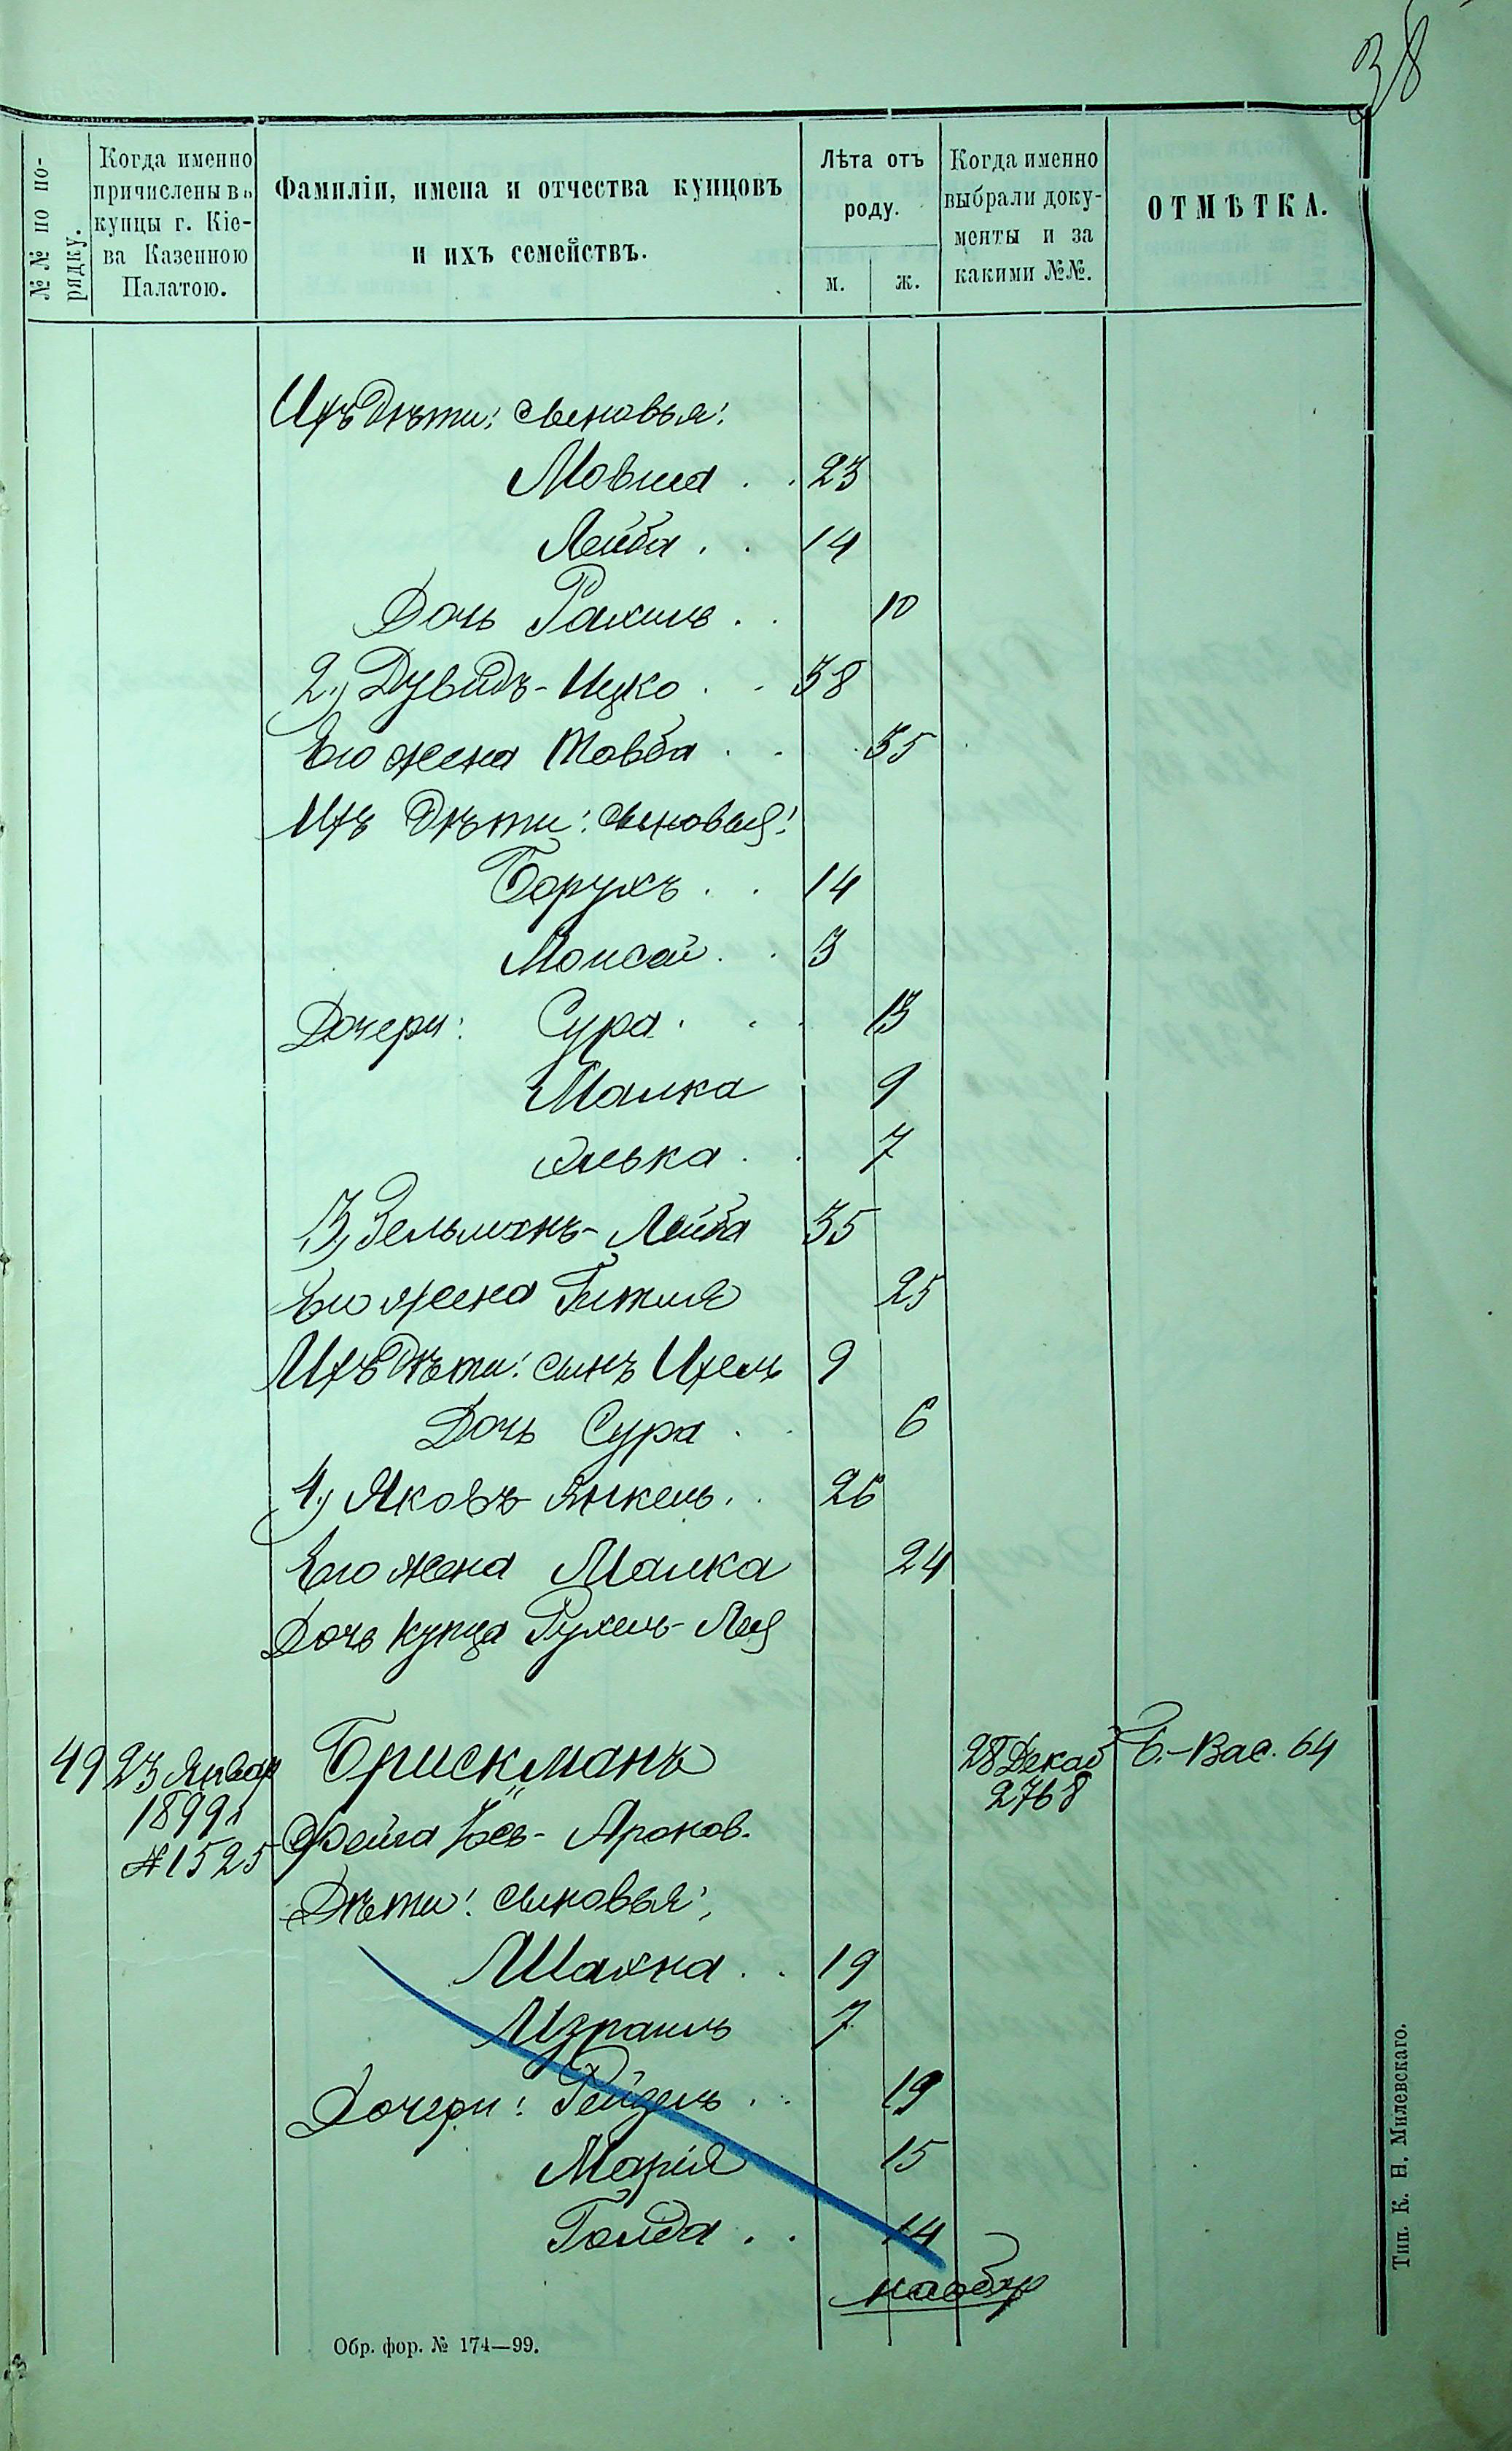 38
№№ по порядку.
Когда именно причислены въ купцы г. Кіева Казенною Палатою.
Фамиліи, имена и отчества купцовъ и ихъ семействъ.
Лѣта отъ роду.
м.
ж.
Когда именно выбрали документы и за какими №№.
ОТМѢТКА.
Ихъ дѣти: сыновья:
Мовша . . 23
Лейба . . 14
Дочь Рахиль . . 10
2.) Дувидъ-Ицко . . 38
Его жена Товба . . . 35
Ихъ дѣти: сыновья:
Борухъ . . 14
Моисей . . 3
Дочери: Сура . . . 13
Малка 9
Элька . . 7
3) Зельманъ-Лейба 35
Его жена Гитля 25
Ихъ дѣти: сынъ Ихель 9
Дочь Сура . . 6
4.) Яковъ-Янкель . . 26
Его жена Малка 24
Дочь купца Рухель-Лея
49 23 Январ Брискманъ 28 Декаб Б.-Вас. 64
1899 г. 2768
№ 1525 Фейга Іось-Аронов.
Дѣти: сыновья:
Шахна . . 19
Израиль 7
Дочери: Рейзель . . 19
Марія 15
Голда . . 14
на обор
Обр. фор. № 174—99.
Тип. К. Н. Милевскаго.